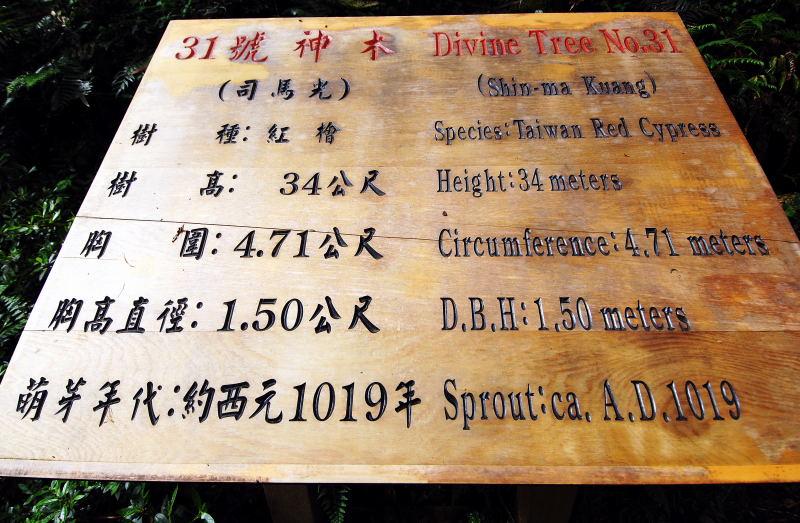 31號神木 Divine Tree No.31
(司馬光) (Shin-ma Kuang)
樹種:紅檜 Species:Taiwan Red Cypress
樹高: 34公尺 Height:34 meters
胸圍:4.71公尺 Circumference:4.71 meters
胸高直徑:1.50公尺 D.B.H:1.50 meters
萌芽年代:約西元1019年 Sprout:ca. A.D.1019